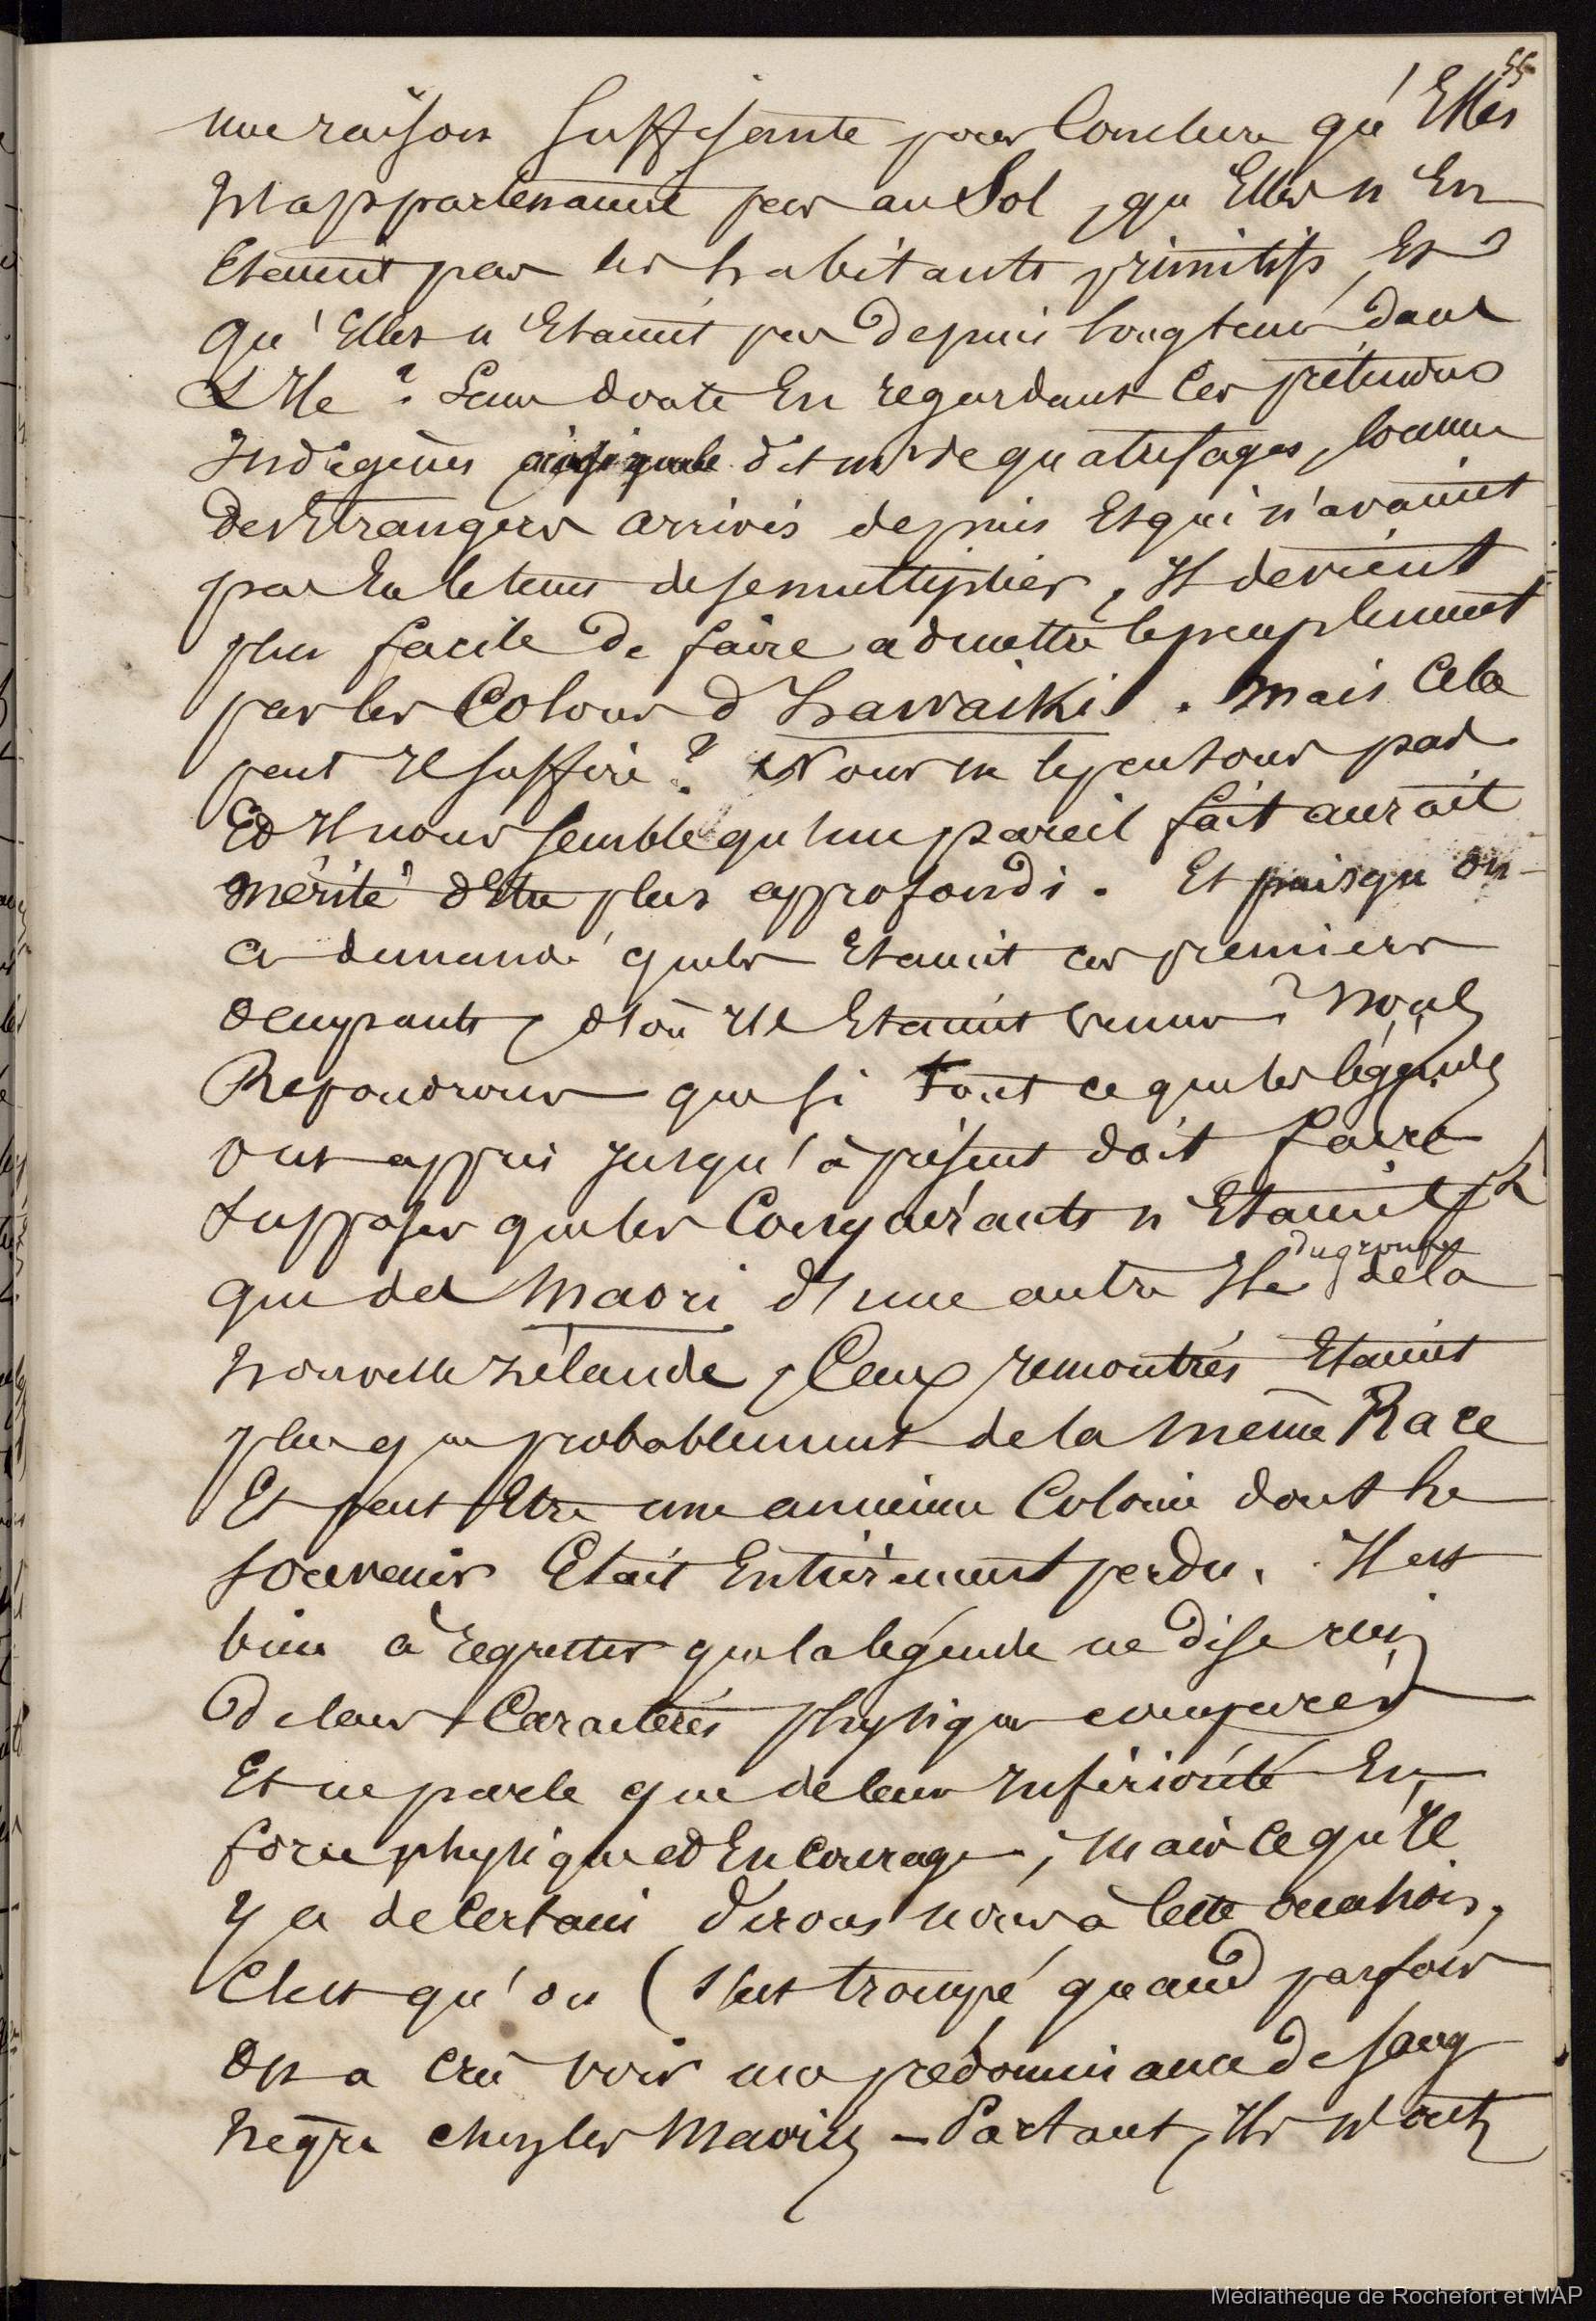 55
une raison suffisante pour conclure qu'Elles
n'appartenaient pas au Sol, qu'Elles n'En
Etaient pas les habitants primitifs, Et
qu'Elles n'Etaient pas depuis longtems dans
L'Ile ? Sans doute En regardant ces prétendus
Indigènes ainsi que le dit Mr de quatrefages, comme
des Etrangers arrivés depuis Et qui n'avaient
pas Eu le tems de se multiplier, Il devient
plus facile de faire admettre le peuplement
par les Colons d'hawaiki. Mais Cela
peut Il suffire ? Nous ne le pensons pas
Et Il nous semble qu'un pareil fait aurait
mérité d'Etre plus approfondi. Et puisqu'on
a demandé quels Etaient ces premiers
occupants, d'où Ils Etaient venus ? Nous
Repondrons que si tout ce que les légendes
ont appris jusqu'à présent doit faire
supposer que les Conquérants n'Etaient
que des Maori d'une autre Ile du groupe de la
Nouvelle Zélande, Ceux rencontrés Etaient
plus que probablement de la même Race
Et peut Etre une ancienne Colonie dont le
souvenir Etait Entièrement perdu. Il est
bien à regretter que la légende ne dise rien
de leurs Caractères physiques comparés
Et ne parle que de leur Infériorité En
force physique et En Courage ; Mais Ce qu'Il
y a de Certain dirons nous à cette occasion,
C'est qu'on s'est trompé quand parfois
on a crû voir une prédominance de sang
nègre chez les Maoris — Partant, Ils n'ont
Médiathèque de Rochefort et MAP